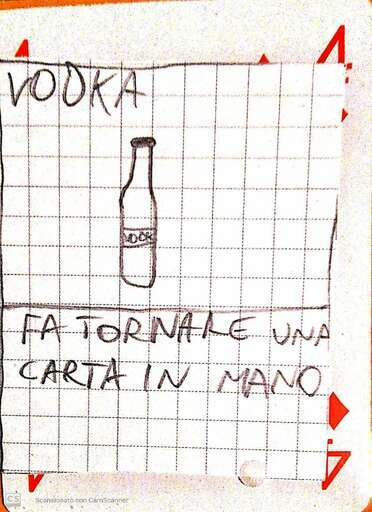 VODKA
VODK
FA TORNARE UNA
CARTA IN MANO
4
CS Scansionato con CamScanner